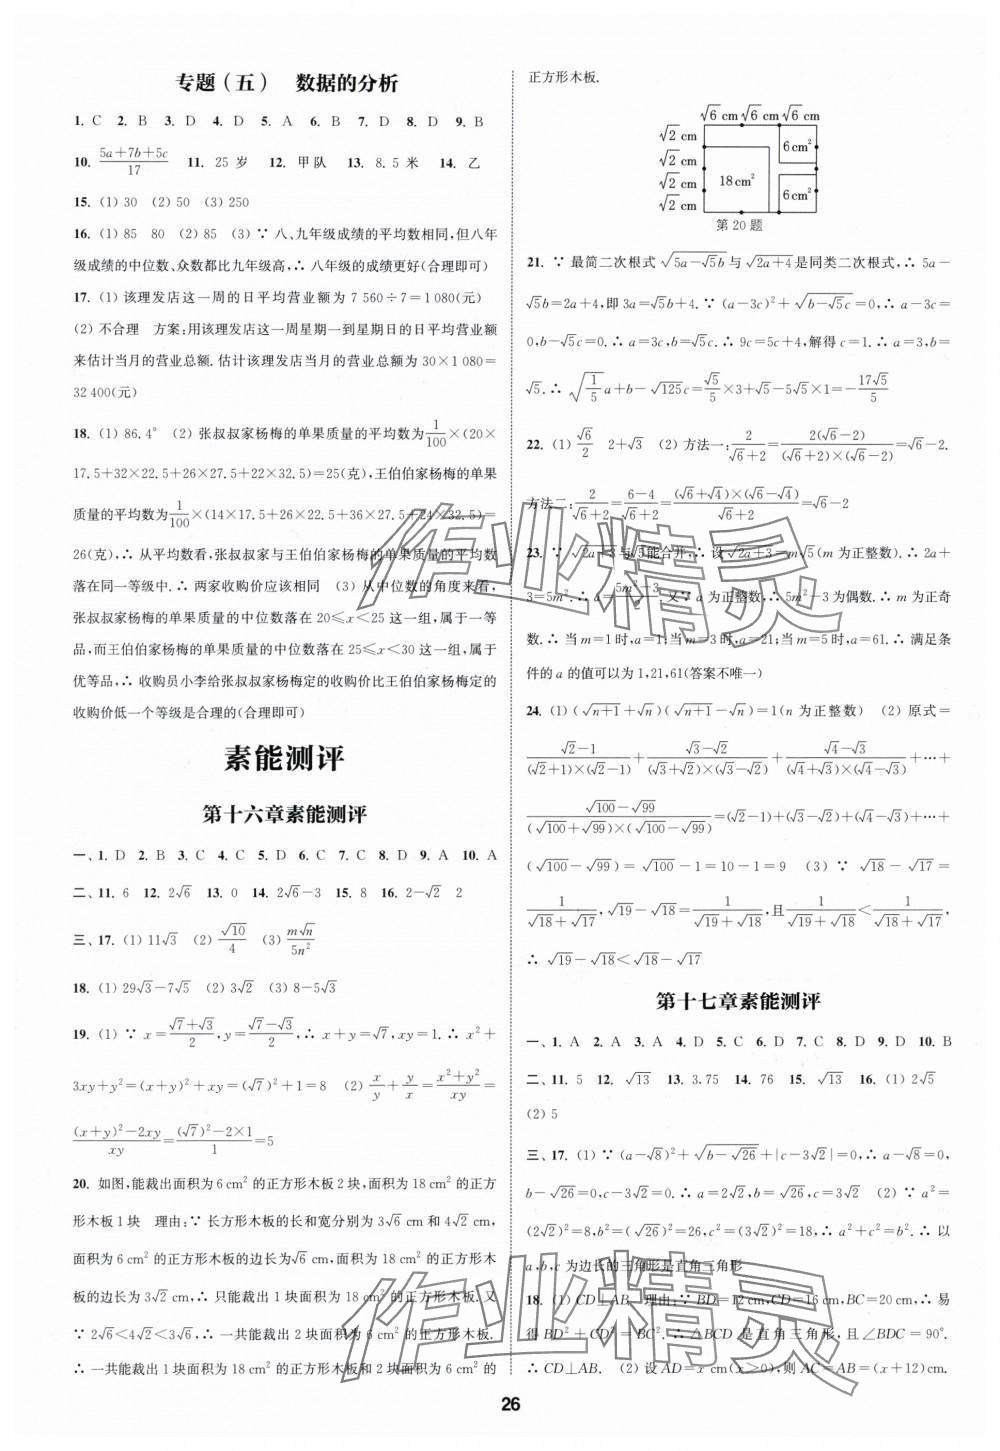 专题(五)　数据的分析
1. C　2. B　3. D　4. D　5. A　6. B　7. D　8. D　9. B
10. (5a+7b+5c)/17　11. 25 岁　12. 甲队　13. 8.5 米　14. 乙
15. (1) 30　(2) 50　(3) 250
16. (1) 85　80　(2) 85　(3) ∵ 八、九年级成绩的平均数相同,但八年
级成绩的中位数、众数都比九年级高,∴ 八年级的成绩更好(合理即可)
17. (1) 该理发店这一周的日平均营业额为 7 560÷7=1 080(元)
(2) 不合理　方案:用该理发店这一周星期一到星期日的日平均营业额
来估计当月的营业总额.估计该理发店当月的营业总额为 30×1 080=
32 400(元)
18. (1) 86.4°　(2) 张叔叔家杨梅的单果质量的平均数为 1/100×(20×
17.5+32×22.5+26×27.5+22×32.5)=25(克),王伯伯家杨梅的单果
质量的平均数为 1/100×(14×17.5+26×22.5+36×27.5+24×32.5)=
26(克),∴ 从平均数看,张叔叔家与王伯伯家杨梅的单果质量的平均数
落在同一等级中.∴ 两家收购价应该相同　(3) 从中位数的角度来看,
张叔叔家杨梅的单果质量的中位数落在 20≤x<25 这一组,属于一等
品,而王伯伯家杨梅的单果质量的中位数落在 25≤x<30 这一组,属于
优等品,∴ 收购员小李给张叔叔家杨梅定的收购价比王伯伯家杨梅定的
收购价低一个等级是合理的(合理即可)
素能测评
第十六章素能测评
一、1. D　2. B　3. C　4. C　5. D　6. C　7. C　8. D　9. A　10. A
二、11. 6　12. 2√6　13. 0　14. 2√6-3　15. 8　16. 2-√2　2
三、17. (1) 11√3　(2) √10/4　(3) m√n/5n²
18. (1) 29√3-7√5　(2) 3√2　(3) 8-5√3
19. (1) ∵ x=(√7+√3)/2,y=(√7-√3)/2,∴ x+y=√7,xy=1.∴ x²+
3xy+y²=(x+y)²+xy=(√7)²+1=8　(2) x/y+y/x=(x²+y²)/xy=
((x+y)²-2xy)/xy=((√7)²-2×1)/1=5
20. 如图,能裁出面积为 6 cm² 的正方形木板 2 块,面积为 18 cm² 的正方
形木板 1 块　理由:∵ 长方形木板的长和宽分别为 3√6 cm 和 4√2 cm,
面积为 6 cm² 的正方形木板的边长为√6 cm,面积为 18 cm² 的正方形木
板的边长为 3√2 cm,∴ 只能裁出 1 块面积为 18 cm² 的正方形木板.又
∵ 2√6<4√2<3√6,∴ 一共能裁出 2 块面积为 6 cm² 的正方形木板.
∴ 一共能裁出 1 块面积为 18 cm² 的正方形木板和 2 块面积为 6 cm² 的
正方形木板.
√6 cm √6 cm √6 cm
√2 cm
√2 cm
√2 cm
√2 cm
6 cm²
18 cm²
6 cm²
第 20 题
21. ∵ 最简二次根式√(5a-√5b)与√(2a+4)是同类二次根式,∴ 5a-
√5b=2a+4,即 3a=√5b+4.∵ (a-3c)²+√(b-√5c)=0,∴ a-3c=
0,b-√5c=0.∴ a=3c,b=√5c.∴ 9c=5c+4,解得 c=1.∴ a=3,b=
√5.∴ √(1/5)a+b-√125c=√5/5×3+√5-5√5×1=-17√5/5
22. (1) √6/2　2+√3　(2) 方法一: 2/(√6+2)=2(√6-2)/((√6+2)×(√6-2))=√6-2.
方法二: 2/(√6+2)=(6-4)/(√6+2)=((√6+√4)×(√6-√4))/(√6+2)=√6-2
23. ∵ √(2a+3)与√5能合并,∴ 设√(2a+3)=m√5(m 为正整数).∴ 2a+
3=5m².∴ a=(5m²-3)/2.又∵ a 为正整数,∴ 5m²-3 为偶数.∴ m 为正奇
数.∴ 当 m=1 时,a=1;当 m=3 时,a=21;当 m=5 时,a=61.∴ 满足条
件的 a 的值可以为 1,21,61(答案不唯一)
24. (1) (√(n+1)+√n)(√(n+1)-√n)=1(n 为正整数)　(2) 原式=
(√2-1)/((√2+1)×(√2-1))+(√3-√2)/((√3+√2)×(√3-√2))+(√4-√3)/((√4+√3)×(√4-√3))+…+
(√100-√99)/((√100+√99)×(√100-√99))=(√2-1)+(√3-√2)+(√4-√3)+…+
(√100-√99)=√100-1=10-1=9　(3) ∵ √18-√17=
1/(√18+√17),√19-√18=1/(√19+√18),且1/(√19+√18)<1/(√18+√17),
∴ √19-√18<√18-√17
第十七章素能测评
一、1. A　2. A　3. A　4. D　5. C　6. D　7. C　8. D　9. D　10. B
二、11. 5　12. √13　13. 3.75　14. 76　15. √13　16. (1) 2√5
(2) 5
三、17. (1) ∵ (a-√8)²+√(b-√26)+|c-3√2|=0,∴ a-√8=0,
b-√26=0,c-3√2=0.∴ a=2√2,b=√26,c=3√2　(2) ∵ a²=
(2√2)²=8,b²=(√26)²=26,c²=(3√2)²=18,∴ a²+c²=b².∴ 以
a,b,c 为边长的三角形是直角三角形
18. (1) CD⊥AB　理由:∵ BD=12 cm,CD=16 cm,BC=20 cm,∴ 易
得 BD²+CD²=BC².∴ △BCD 是直角三角形,且∠BDC=90°.
∴ CD⊥AB.　(2) 设 AD=x cm(x>0),则 AC=AB=(x+12)cm.
26
作业精灵
作业精灵